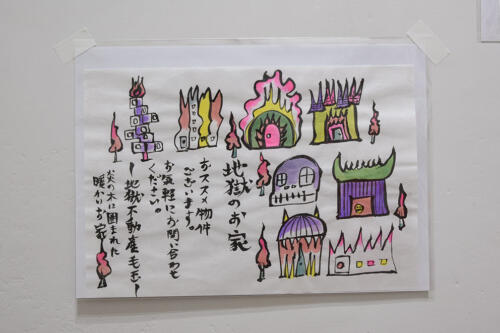 地獄のお家
おススメ物件
ございます。
お気軽にお問い合わせ
ください。
ー地獄不動産
炎の木に囲まれた
暖かいお家ー